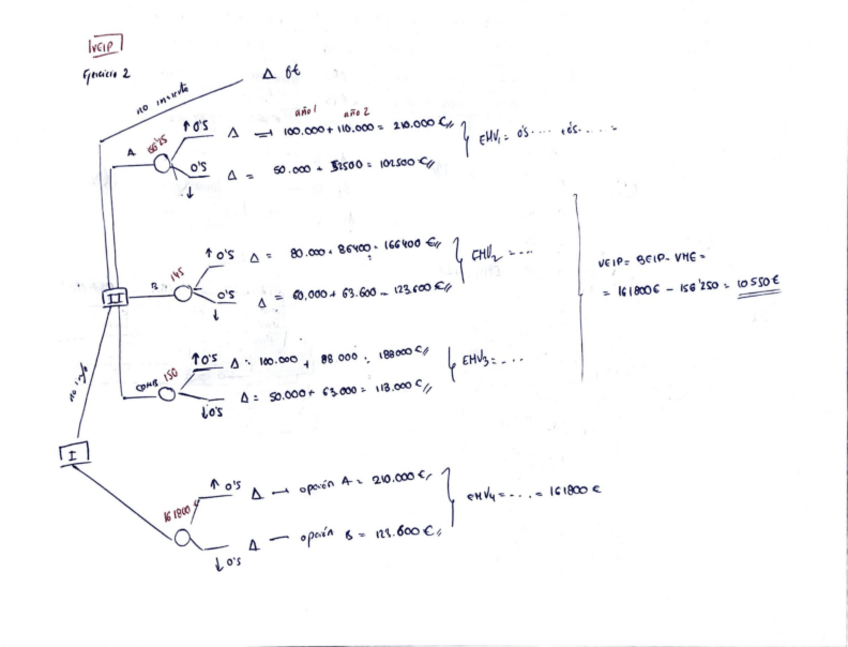 VEIP
Ejercicio 2
no invierte Δ 0€
año 1 año 2
A 156'25 ↑ 0'5 Δ → 100.000 + 110.000 = 210.000 €//
EMV₁ = 0'5 .... + 0'5 ..... =
↓ 0'5 Δ = 50.000 + 52500 = 102500 €//
B 145 ↑ 0'5 Δ = 80.000 + 86400 = 166400 €//
EMV₂ = ....
↓ 0'5 Δ = 60,000 + 63.600 = 123.600 €//
VEIP = BEIP - VME =
= 161800€ - 156'250 = 10550€
COMB 150 ↑ 0'5 Δ = 100.000 + 88 000 = 188000 €//
EMV₃ = ....
↓ 0's Δ = 50.000 + 63.000 = 113.000 €//
II
no info
I
161800 ↑ 0'5 Δ → opción A = 210.000 €//
EMV₄ = .... = 161800 €
↓ 0's Δ — opción B = 123.600 €//